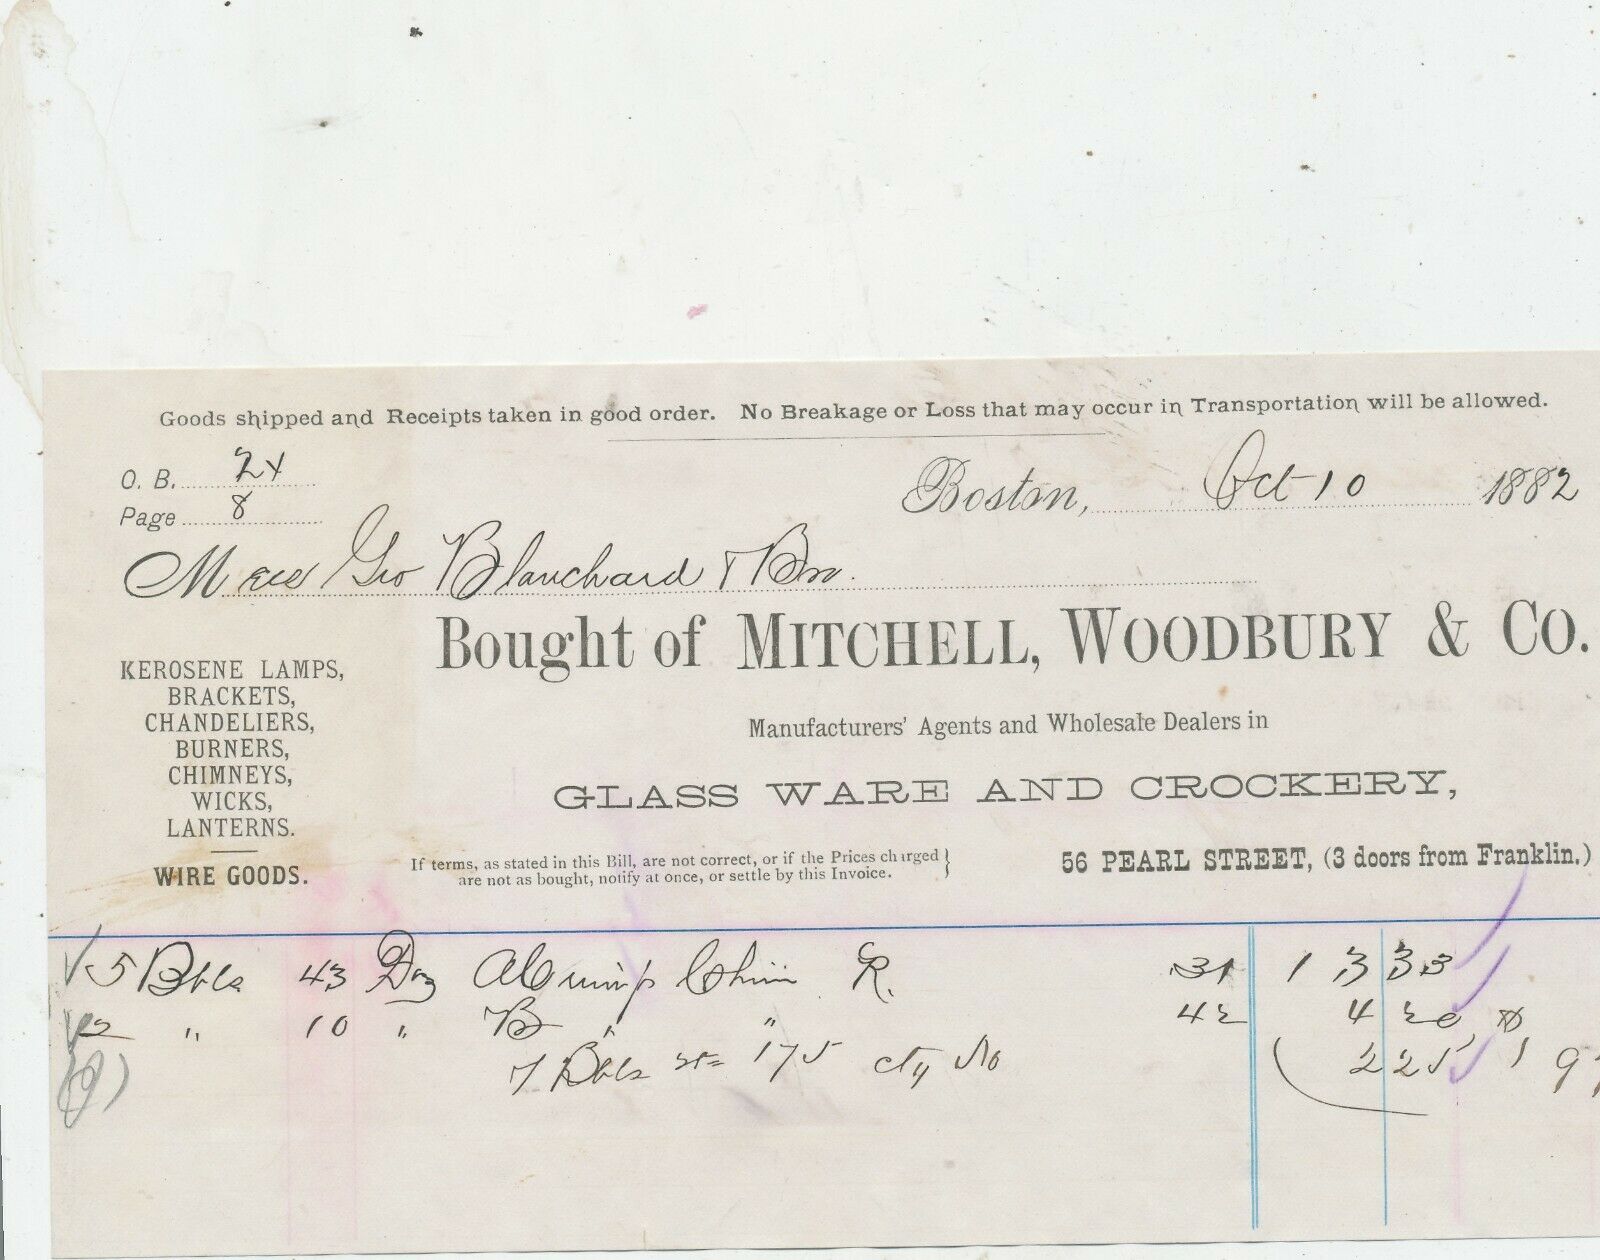 Goods shipped and Receipts taken in good order. No Breakage or Loss that may occur in Transportation will be allowed.
O. B. 24
Page 8
Boston, Oct 10 1882
Mess Geo Blanchard & Bro.
Bought of MITCHELL, WOODBURY & CO.
Manufacturers' Agents and Wholesale Dealers in
GLASS WARE AND CROCKERY,
56 PEARL STREET, (3 doors from Franklin.)
KEROSENE LAMPS,
BRACKETS,
CHANDELIERS,
BURNERS,
CHIMNEYS,
WICKS,
LANTERNS.
WIRE GOODS.
If terms, as stated in this Bill, are not correct, or if the Prices charged
are not as bought, notify at once, or settle by this Invoice.
5 Bbls 43 Doz A Crimp Chim R. 31 13 33
2 " 10 " B " " 42 4 20
7 Bbls 175 2 25